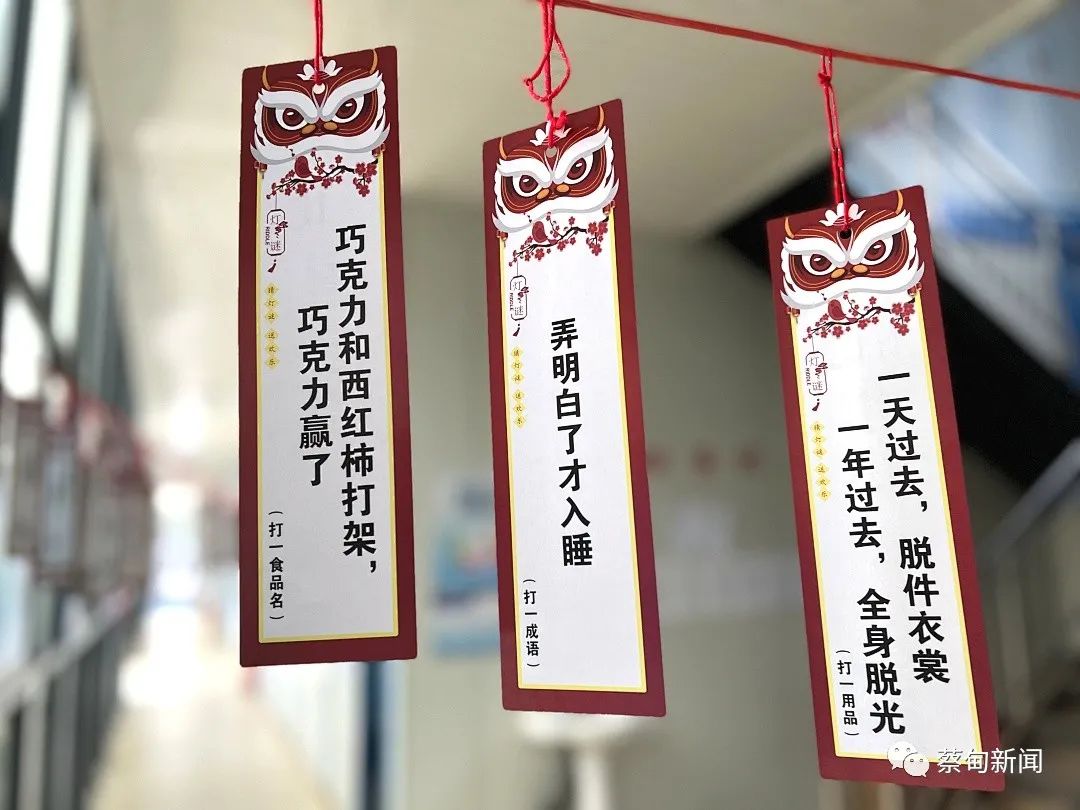 灯谜
RIDDLE
猜灯谜 送欢乐
巧克力和西红柿打架，
巧克力赢了
（打一食品名）
灯谜
RIDDLE
猜灯谜 送欢乐
弄明白了才入睡
（打一成语）
灯谜
RIDDLE
猜灯谜 送欢乐
一天过去，脱件衣裳
一年过去，全身脱光
（打一用品）
蔡甸新闻